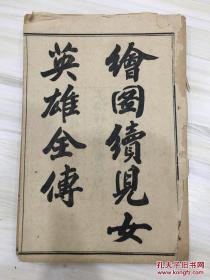 繪圖續兒女
英雄全傳